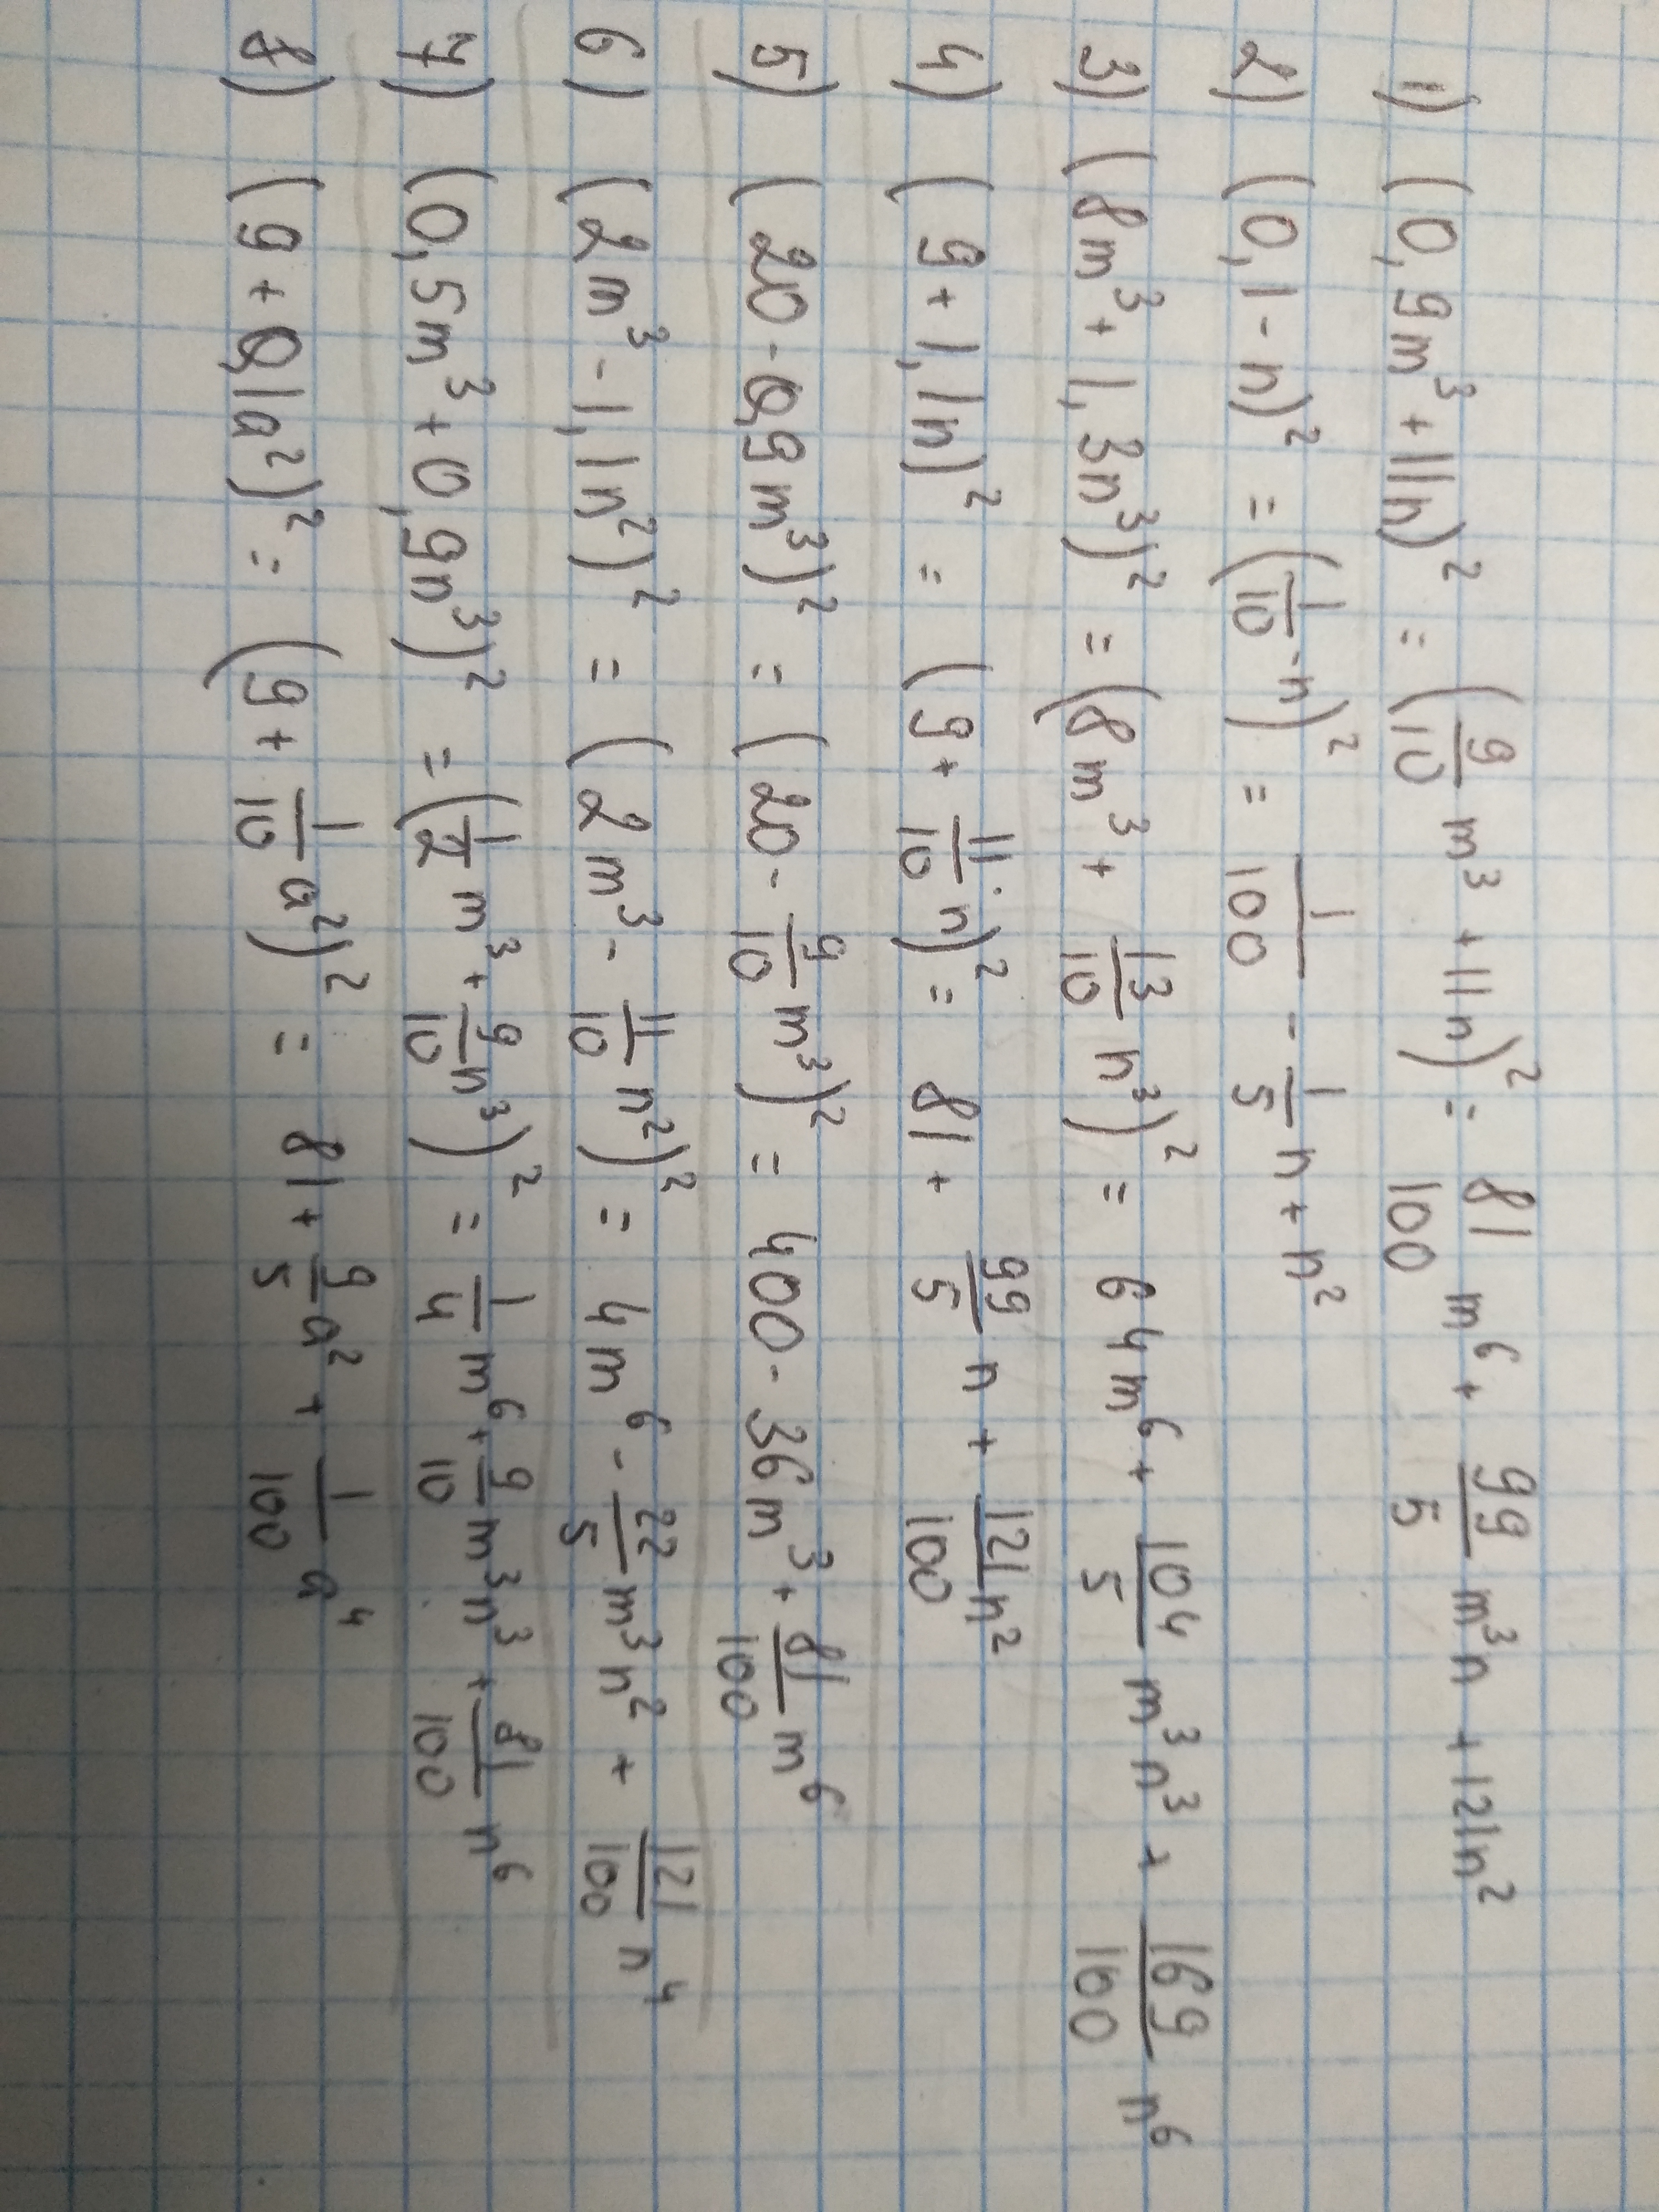 1) (0,9m³+11n)² = (9/10 m³+11n)² = 81/100 m⁶ + 99/5 m³n + 121n²
2) (0,1-n)² = (1/10-n)² = 1/100 - 1/5 n + n²
3) (8m³+1,3n³)² = (8m³ + 13/10 n³)² = 64m⁶ + 104/5 m³n³ + 169/100 n⁶
4) (9+1,1n)² = (9+ 11/10 n)² = 81 + 99/5 n + 121/100 n²
5) (20-0,9m³)² = (20- 9/10 m³)² = 400 - 36m³ + 81/100 m⁶
6) (2m³-1,1n²)² = (2m³- 11/10 n²)² = 4m⁶ - 22/5 m³n² + 121/100 n⁴
7) (0,5m³+0,9n³)² = (1/2 m³+ 9/10 n³)² = 1/4 m⁶ + 9/10 m³n³ + 81/100 n⁶
8) (9+0,1a²)² = (9+ 1/10 a²)² = 81 + 9/5 a² + 1/100 a⁴